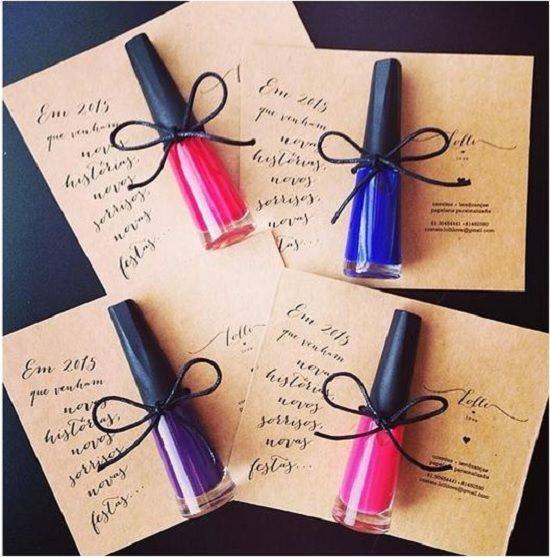 Em 2015
que venham
histórias,
novos
sorrisos,
novas
festas...
Em 2015
que venham
novas
histórias,
novos
sorrisos,
novas
Lolli
love
convites - lembranças
papelaria personalizada
Em 2015
que venham
novas
histórias,
novos
sorrisos,
novas
festas...
Em 2015
que venham
novas
histórias,
novos
sorrisos,
novas
festas...
Lolli
love